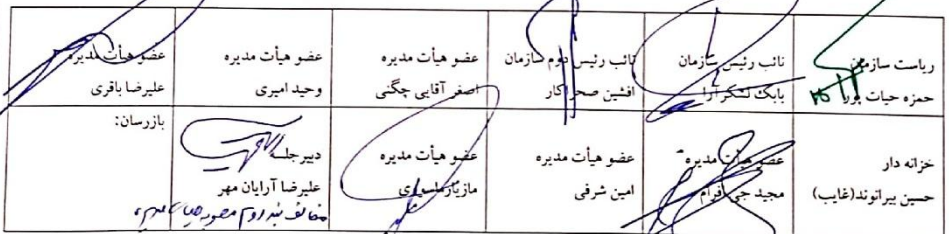 ریاست سازمان
حمزه حیات پور
نائب رئیس سازمان
بابک لشگرآرا
نائب رئیس دوم سازمان
افشین صحراکار
عضو هیأت مدیره
اصغر آقایی چگنی
عضو هیأت مدیره
وحید امیری
عضو هیأت مدیره
علیرضا باقری
خزانه دار
حسین بیرانوند(غایب)
عضو هیأت مدیره
مجید جی افرام
عضو هیأت مدیره
امین شرفی
عضو هیأت مدیره
مازیار
دبیرجلسه
علیرضا آرایان مهر
مخالف بند دوم مصوبه
بازرسان: